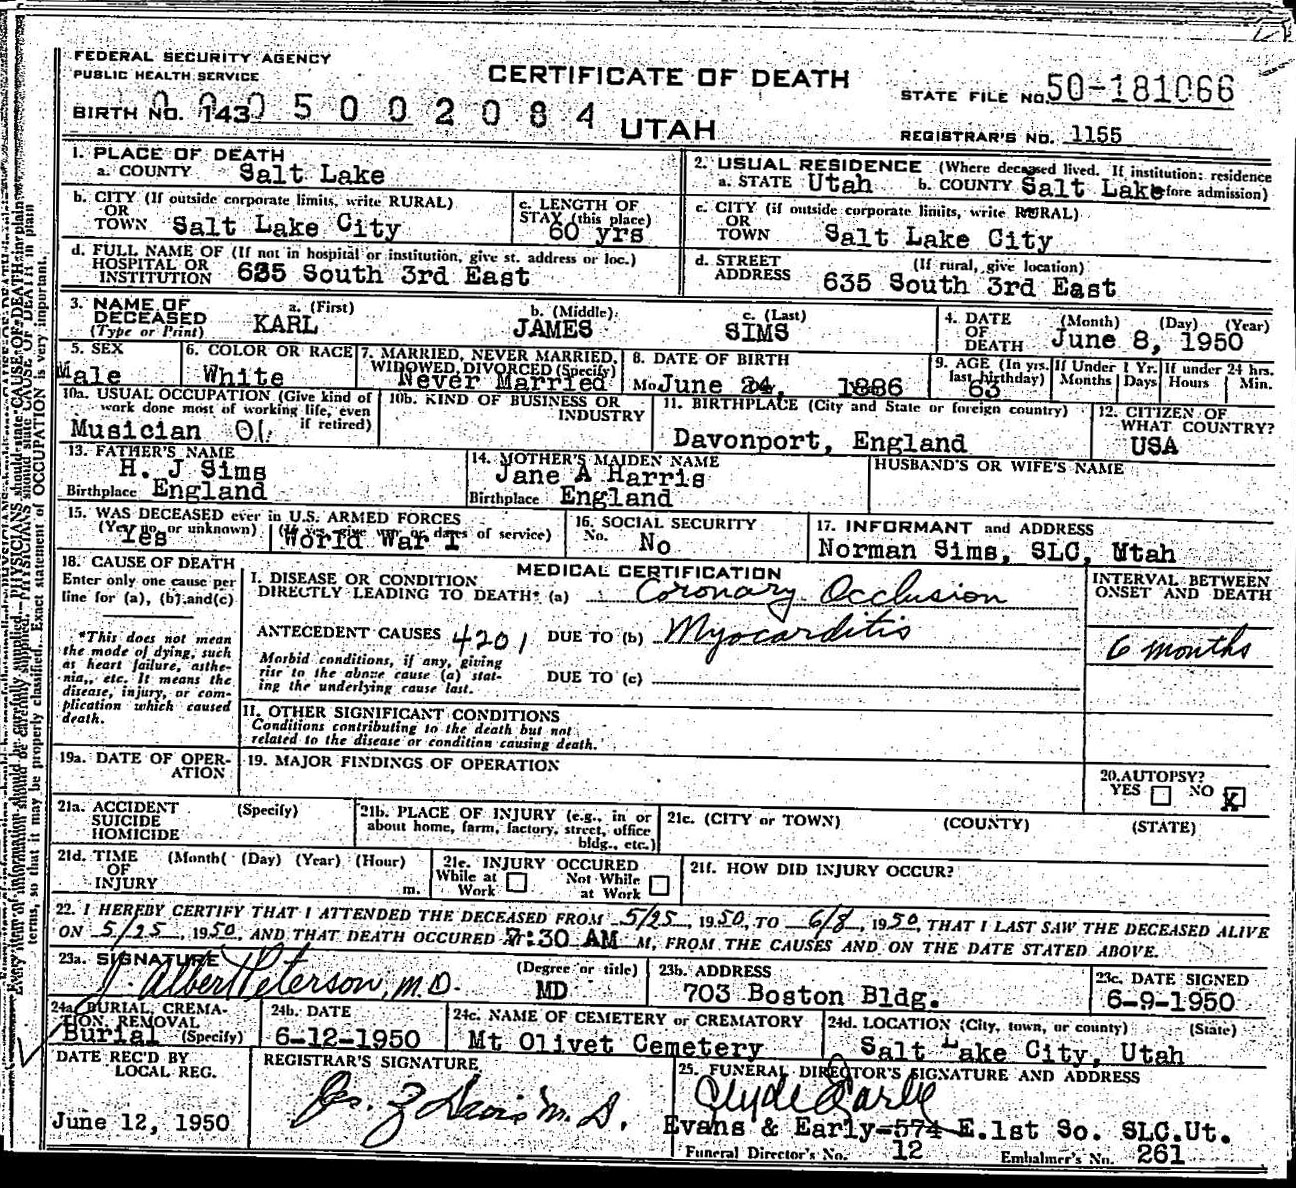 FEDERAL SECURITY AGENCY
PUBLIC HEALTH SERVICE
CERTIFICATE OF DEATH
STATE FILE NO. 50-181066
BIRTH NO. 143
0005002084
UTAH
REGISTRAR'S NO. 1155
1. PLACE OF DEATH
a. COUNTY Salt Lake
2. USUAL RESIDENCE (Where deceased lived. If institution: residence
a. STATE Utah b. COUNTY Salt Lake fore admission)
b. CITY (If outside corporate limits, write RURAL)
OR
TOWN Salt Lake City
c. LENGTH OF
STAY (this place)
60 yrs
c. CITY (if outside corporate limits, write RURAL)
OR
TOWN Salt Lake City
d. FULL NAME OF (If not in hospital or institution, give st. address or loc.)
HOSPITAL OR
INSTITUTION 635 South 3rd East
d. STREET (If rural, give location)
ADDRESS 635 South 3rd East
3. NAME OF DECEASED
(Type or Print)
a. (First) KARL
b. (Middle) JAMES
c. (Last) SIMS
4. DATE OF DEATH (Month) (Day) (Year)
June 8, 1950
5. SEX
Male
6. COLOR OR RACE
White
7. MARRIED, NEVER MARRIED,
WIDOWED, DIVORCED (Specify)
Never Married
8. DATE OF BIRTH
Mo. June 24, 1886
9. AGE (In yrs.
last birthday)
63
If Under 1 Yr.
Months Days
If under 24 hrs.
Hours Min.
10a. USUAL OCCUPATION (Give kind of
work done most of working life, even
if retired)
Musician
10b. KIND OF BUSINESS OR
INDUSTRY
11. BIRTHPLACE (City and State or foreign country)
Davonport, England
12. CITIZEN OF
WHAT COUNTRY?
USA
13. FATHER'S NAME
H. J Sims
Birthplace England
14. MOTHER'S MAIDEN NAME
Jane A Harris
Birthplace England
HUSBAND'S OR WIFE'S NAME
15. WAS DECEASED ever in U.S. ARMED FORCES
(Yes, no, or unknown) of service)
Yes World War I
16. SOCIAL SECURITY
No. No
17. INFORMANT and ADDRESS
Norman Sims, SLC, Utah
18. CAUSE OF DEATH
Enter only one cause per
line for (a), (b) and (c)
*This does not mean
the mode of dying, such
as heart failure, asthe-
nia, etc. It means the
disease, injury, or com-
plication which caused
death.
MEDICAL CERTIFICATION
I. DISEASE OR CONDITION
DIRECTLY LEADING TO DEATH* (a) Coronary Occlusion
ANTECEDENT CAUSES 4201 DUE TO (b) Myocarditis
Morbid conditions, if any, giving
rise to the above cause (a) stat-
ing the underlying cause last.
DUE TO (c)
INTERVAL BETWEEN
ONSET AND DEATH
6 months
11. OTHER SIGNIFICANT CONDITIONS
Conditions contributing to the death but not
related to the disease or condition causing death.
19a. DATE OF OPER-
ATION
19. MAJOR FINDINGS OF OPERATION
20. AUTOPSY?
YES NO X
21a. ACCIDENT (Specify)
SUICIDE
HOMICIDE
21b. PLACE OF INJURY (e.g., in or
about home, farm, factory, street, office
bldg., etc.)
21c. (CITY or TOWN) (COUNTY) (STATE)
21d. TIME (Month( (Day) (Year) (Hour)
OF
INJURY m.
21e. INJURY OCCURED
While at Work Not While at Work
21f. HOW DID INJURY OCCUR?
22. I HEREBY CERTIFY THAT I ATTENDED THE DECEASED FROM 5/25, 1950, TO 6/8, 1950, THAT I LAST SAW THE DECEASED ALIVE
ON 5/25, 1950, AND THAT DEATH OCCURED AT 7:30 AM M, FROM THE CAUSES AND ON THE DATE STATED ABOVE.
23a. SIGNATURE (Degree or title)
J. Albert Peterson, M.D. MD
23b. ADDRESS
703 Boston Bldg.
23c. DATE SIGNED
6-9-1950
24a. BURIAL, CREMA-
TION, REMOVAL
Burial (Specify)
24b. DATE
6-12-1950
24c. NAME OF CEMETERY or CREMATORY
Mt Olivet Cemetery
24d. LOCATION (City, town, or county) (State)
Salt Lake City, Utah
DATE REC'D BY
LOCAL REG.
June 12, 1950
REGISTRAR'S SIGNATURE
25. FUNERAL DIRECTOR'S SIGNATURE AND ADDRESS
Clyde Early
Evans & Early-574 E.1st So. SLC.Ut.
Funeral Director's No. 12 Embalmer's No. 261